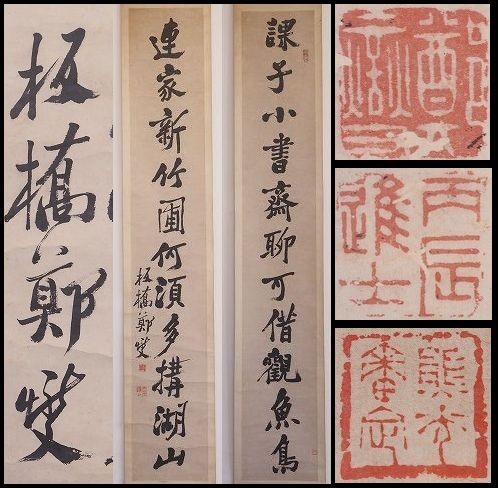 課子小書齋聊可借觀魚鳥
連家新竹圃何湏多搆湖山
板橋鄭燮
板橋鄭燮
丙辰
進士